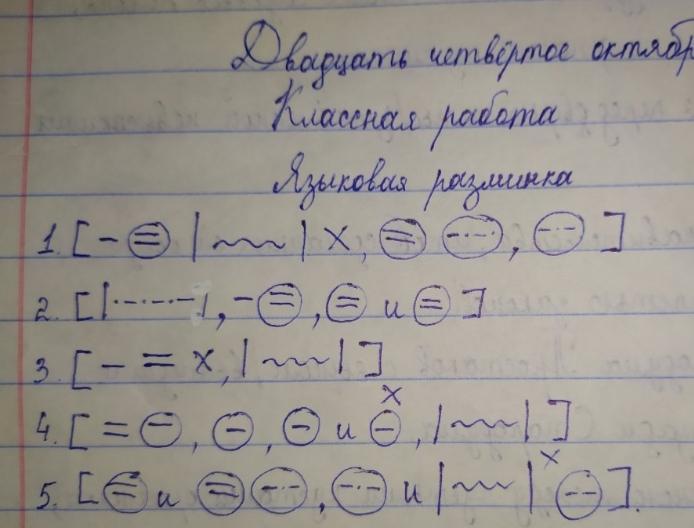 Двадцать четвёртое октябр
Классная работа
Языковая разминка
1. [ - (=) | ~~~ | х, (=) (-·-·), (-·-) ]
2. [ |-·-·-·-|, - (=), (=) и (=) ]
3. [ - = х, | ~~~ | ]
4. [ = (-), (-), (-) и (-) х, | ~~~ | ]
5. [ (=) и (=) (-·-), (-·-) и | ~~~ | х (-·-) ].